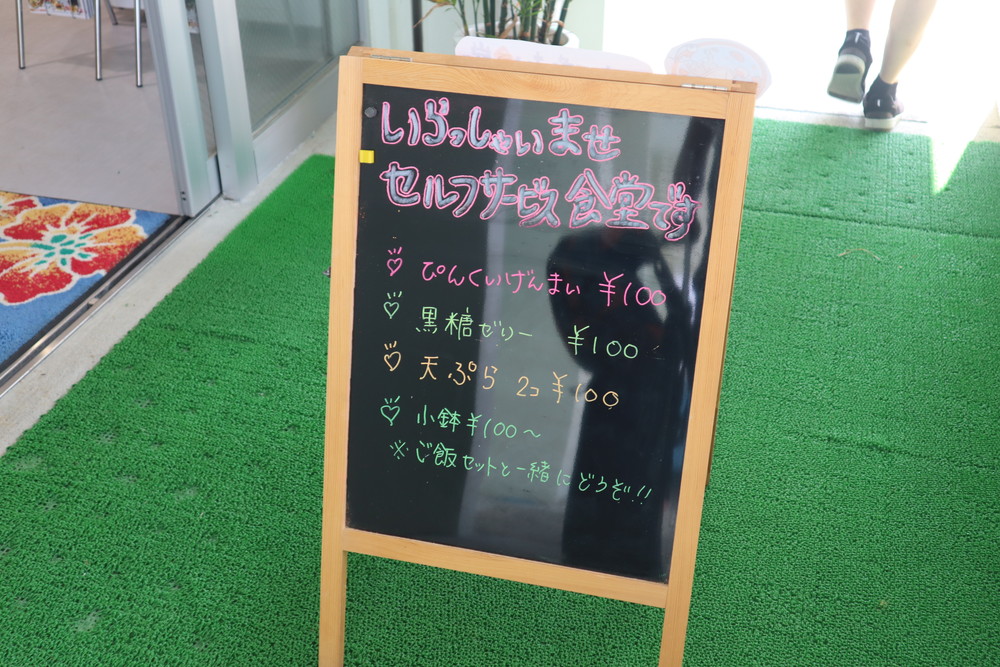 いらっしゃいませ
セルフサービス食堂です
ぴんくいげんまい ¥100
黒糖ゼリー ¥100
天ぷら 2コ ¥100
小鉢 ¥100～
※ご飯セットと一緒にどうぞ!!